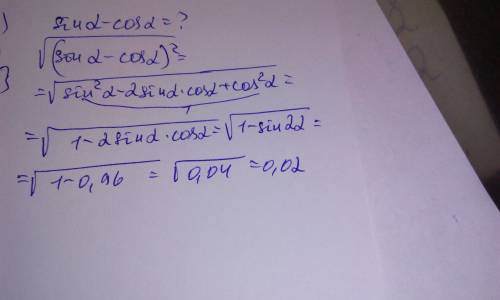 ) sinα-cosα=?
√(sinα-cosα)²=
=√sin²α-2sinα·cosα+cos²α=
1
=√1-2sinα·cosα=√1-sin2α=
=√1-0,96 =√0,04=0,02